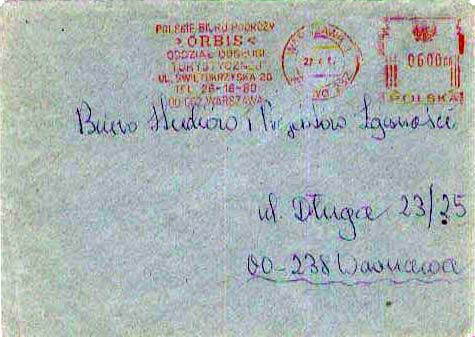 POLSKIE BIURO PODRÓŻY
"ORBIS"
ODDZIAŁ OBSŁUGI
TURYSTYCZNEJ
UL. ŚWIĘTOKRZYSKA 20
TEL. 26-18-80
00-002 WARSZAWA
WARSZAWA
0600
POLSKA
Biuro Studiów i Projektów Łączności
ul. Długa 23/25
00-238 Warszawa